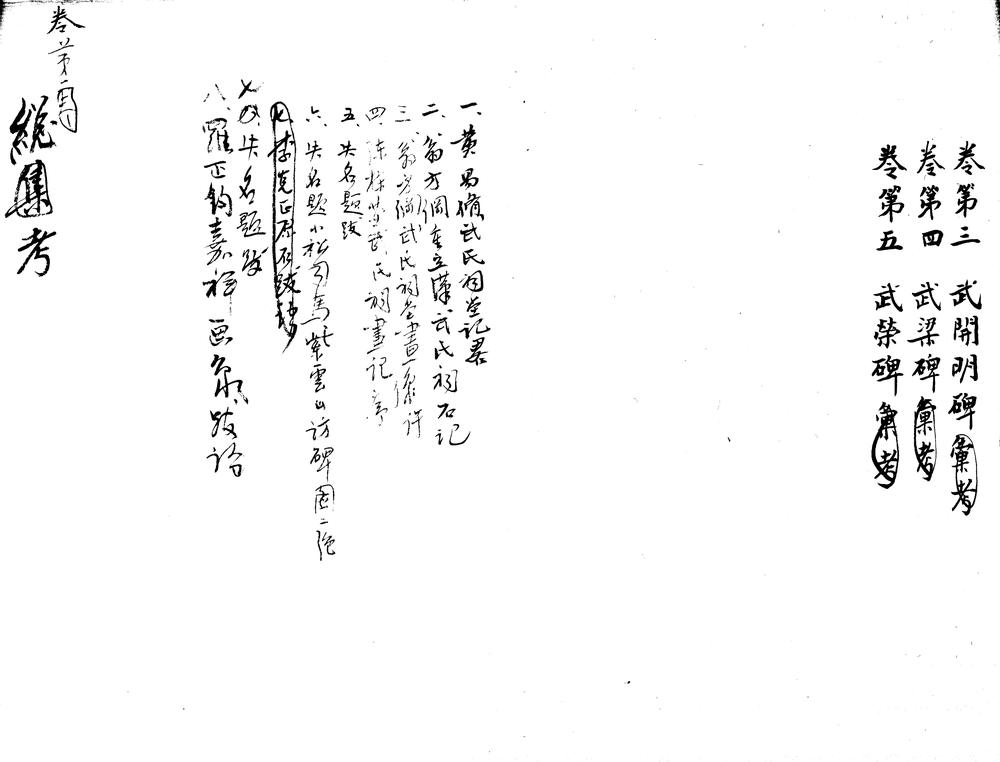 卷第三 武開明碑彙考
卷第四 武梁碑彙考
卷第五 武榮碑彙考
一、黃易脩武氏祠堂記畧
二、翁方綱重立漢武氏祠石記
三、翁方綱武氏祠堂畫像詩
四、陳 武氏祠畫記
五、失名題跋
六、失名題小松司馬紫雲山訪碑圖二絶
七、李克正原石跋
七、失名題跋
八、羅正鈞嘉祥画象跋
卷第
總集考